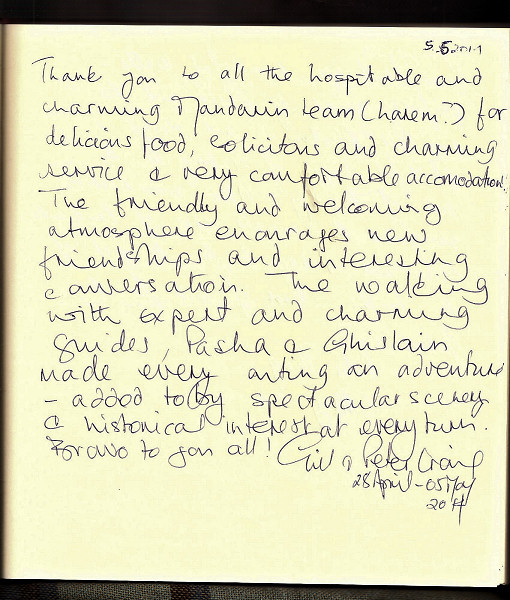 5.5.2011
Thank you to all the hospitable and
charming Mandarin team (harem?) for
delicious food, solicitous and charming
service & very comfortable accomodation.
The friendly and welcoming
atmosphere encourages new
friendships and interesting
conversation. The walking
with expert and charming
guides, Pasha & Ghislain
made every outing an adventure
- added to by spectacular scenery
& historical interest at every turn.
Bravo to you all! Gill & Peter Craig
28 April - 05 May
2011